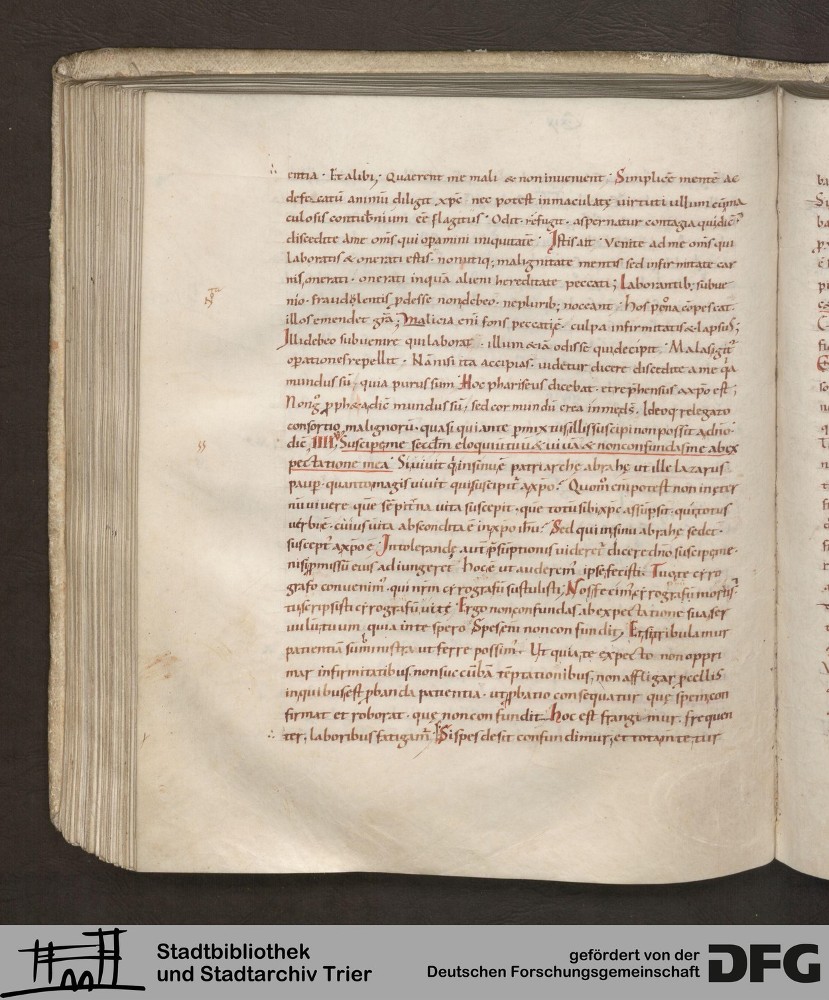 entia · Et alibi, Quaerent me mali & non invenient; Simplicē mentē ac
defecatū animū diligit xp̄c nec potest inmaculatę virtuti ullum
culosis ēē flagitiis · Odit · refugit · aspernatur contagia
discedite a me om̄s qui opamini iniquitatē Istis ait · Venite ad me om̄s qui
laboratis & onerati estis · non utiq; malignitate mentis sed infirmitate car
nis, onerati · onerati inquā alieni hereditate peccati; Laborantib; subue
nio · fraudulentis pdesse non debeo · ne plurib; noceant · hos pęna cōpescat ·
illos emendet gr̄a; Malicia eni fons peccati ē · culpa infirmitatis & lapsus;
Illi debeo subvenire qui laborat · illum &iā odisse qui decipit · Malas igit̄
opationes repellit · Nā nisi ita accipias · videtur dicere discedite a me q̄a
mundus sū; quia purus sum Hoc phariseus dicebat · et rephensus a xp̄o est;
Non g̊ pph&a dic mundus sū, sed cor mundū crea in me d̄s · Ideoq; relegato
consortio malignorū · quasi qui ante pmixtus illis suscipi non possit a dn̄o
dic̄ IIII, Suscipe me secdm eloquiū tuū & vivā & non confundas me ab ex
pectatione mea Si vivit q̄ in sinu ē patriarche abrahę ut ille lazarus
paup · quanto magis vivit qui suscipit̄ a xp̄o? Quom̄ eni potest non in ęter
nū vivere quē sēpit̄na vita suscepit · quē totū sibi xp̄c assūpsit · qui totus
verbi ē · cuius vita abscondita ē in xp̄o ih̄u? Sed qui in sinu abrahę sedet ·
suscept̄ a xp̄o ē Intolerandę aut̄ p̄sūptionis videret̄ dicere dn̄o suscipe me ·
nisi pmissū eius adiungeret̄ hoc ē ut auderem̄ ipse fecisti · Tuo te cyro
grafo convenim̄ · qui nr̄m cyrografū sustulisti; Nos fecim̄ cyrografū mortis ·
tu scripsisti cyrografū vitę · Ergo non confundas ab expectatione sua ser
vulū tuum, quia in te spero · Spes eni non confundit, Et si tribulamur
patientiā subministra ut ferre possim̄ · Ut qui a te expecto non oppri
mar infirmitatibus non succūbā tēptationibus, non affligar pcellis
in quibus est pbanda patientia · ut pbatio consequatur que spem con
firmat et roborat · que non confundit hoc est frangimur, frequen
ter, laboribus fatigam̄ Si spes desit confundimur, et tota mēte
Stadtbibliothek
und Stadtarchiv Trier
gefördert von der
Deutschen Forschungsgemeinschaft
DFG